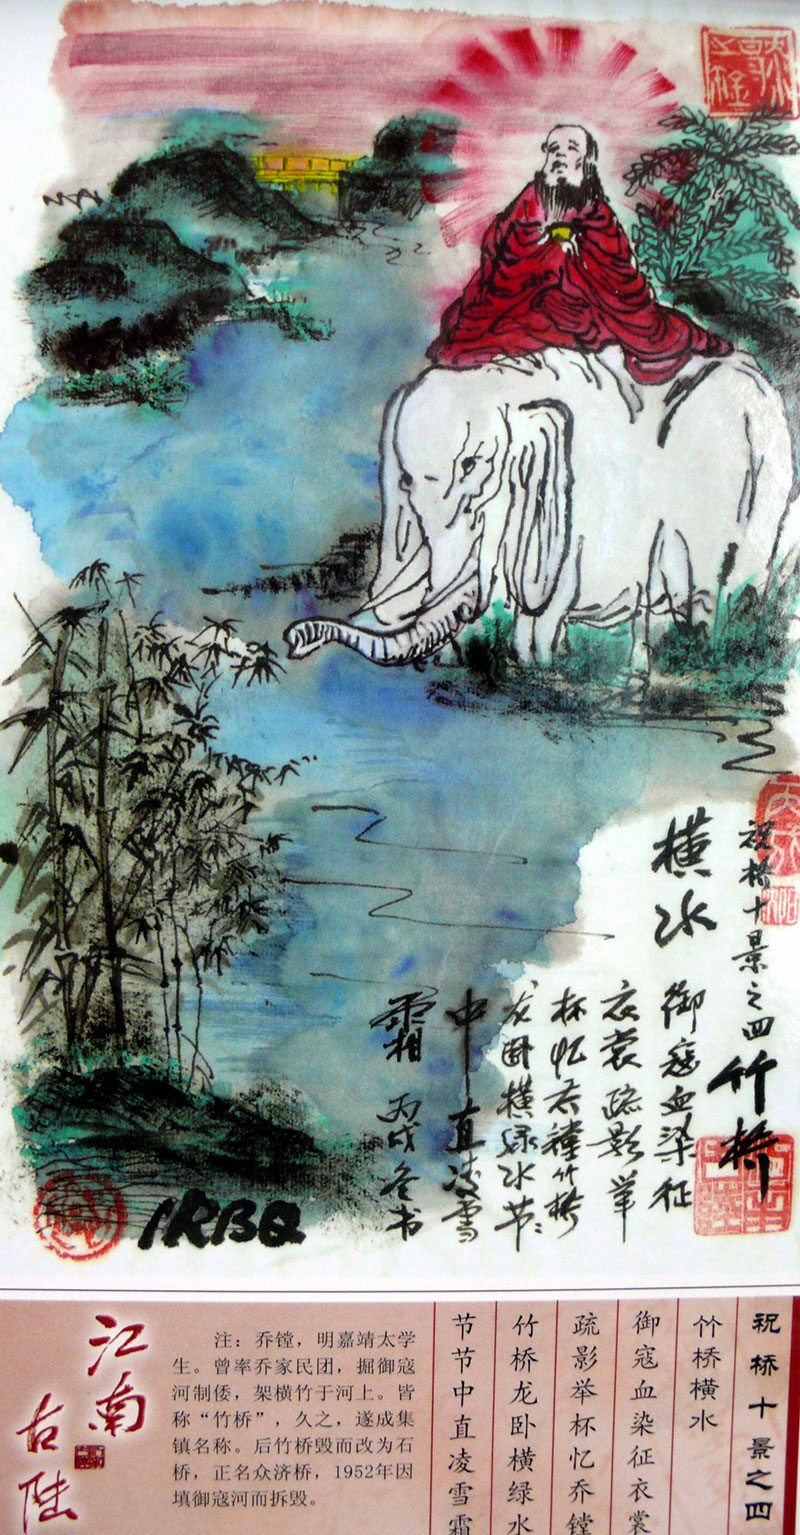 祝桥十景之四 竹桥
横水 御寇血染征
衣裳疏影举
杯忆乔镗竹桥
龙卧横绿水节々
中直凌雪
霜 丙戌冬书
祝桥十景之四
竹桥横水
御寇血染征衣裳
疏影举杯忆乔镗
竹桥龙卧横绿水
节节中直凌雪霜
注：乔镗，明嘉靖太学
生。曾率乔家民团，掘御寇
河制倭，架横竹于河上。皆
称“竹桥”，久之，遂成集
镇名称。后竹桥毁而改为石
桥，正名众济桥，1952年因
填御寇河而拆毁。
江南
古陆